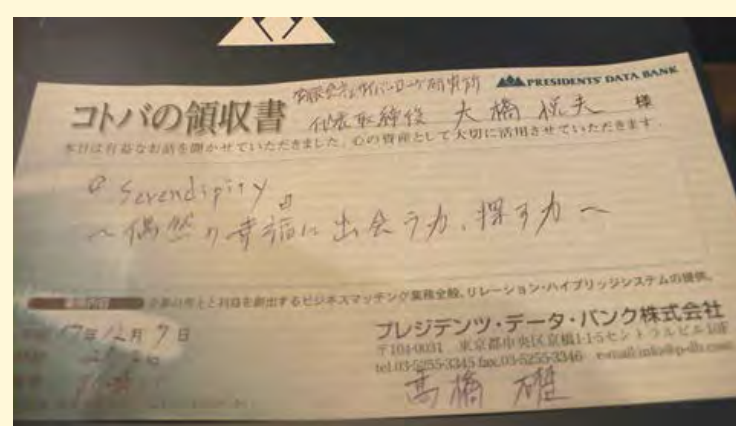 有限会社サイバーローグ研究所
PRESIDENTS' DATA BANK
コトバの領収書
代表取締役 大橋悦夫 様
本日は有益なお話を聞かせていただきました。心の資産として大切に活用させていただきます。
Serendipity
~偶然の幸福に出会う力、探す力~
企業の売上と利益を創出するビジネスマッチング業務全般、リレーション・ハイブリッジシステムの提供。
17年12月9日
プレジデンツ・データ・バンク株式会社
〒104-0031 東京都中央区京橋1-1-5セントラルビル10F
tel.03-5255-3345 fax.03-5255-3346 e-mail:info@p-db.com
高橋